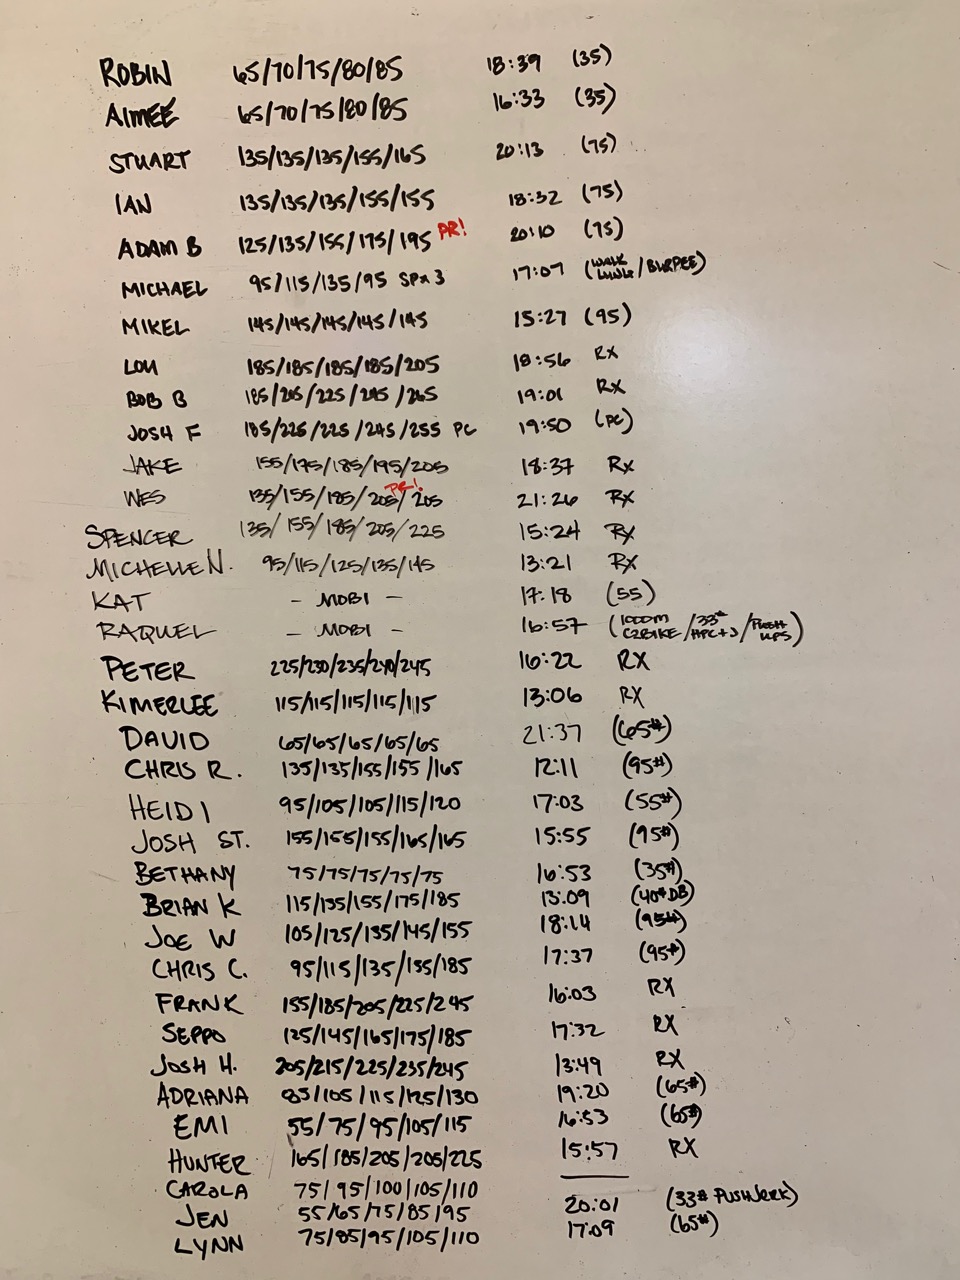 ROBIN 65/70/75/80/85 18:39 (35)
AIMEE 65/70/75/80/85 16:33 (35)
STUART 135/135/135/155/165 20:13 (75)
IAN 135/135/135/155/155 18:32 (75)
ADAM B 125/135/155/175/195 PR! 20:10 (75)
MICHAEL 95/115/135/95 SPx3 17:07 (WALK LUNG/BURPEE)
MIKEL 145/145/145/145/145 15:27 (95)
LOU 185/185/185/185/205 18:56 RX
BOB B 185/205/225/245/265 19:01 RX
JOSH F 185/225/225/245/255 PC 19:50 (PC)
JAKE 155/175/185/195/205 18:37 Rx
WES 135/155/185/205/205 PR! 21:26 Rx
SPENCER 135/155/185/205/225 15:24 Rx
MICHELLE N. 95/115/125/135/145 13:21 Rx
KAT - MOBI - 17:18 (55)
RAQUEL - MOBI - 16:57 (1000M C2BIKE/33# HPC+J/PUSH UPS)
PETER 225/230/235/240/245 16:22 RX
KIMERLEE 115/115/115/115/115 13:06 RX
DAVID 65/65/65/65/65 21:37 (65#)
CHRIS R. 135/135/155/155/165 12:11 (95#)
HEIDI 95/105/105/115/120 17:03 (55#)
JOSH ST. 155/155/155/165/165 15:55 (95#)
BETHANY 75/75/75/75/75 16:53 (35#)
BRIAN K 115/135/155/175/185 13:09 (40#DB)
JOE W 105/125/135/145/155 18:14 (95#)
CHRIS C. 95/115/135/155/185 17:37 (95#)
FRANK 155/185/205/225/245 16:03 RX
SEPPO 125/145/165/175/185 17:32 RX
JOSH H. 205/215/225/235/245 13:49 RX
ADRIANA 85/105/115/125/130 19:20 (65#)
EMI 55/75/95/105/115 16:53 (65#)
HUNTER 165/185/205/205/225 15:57 RX
CAROLA 75/95/100/105/110
JEN 55/65/75/85/95 20:01 (33# PUSH JERK)
LYNN 75/85/95/105/110 17:09 (65#)